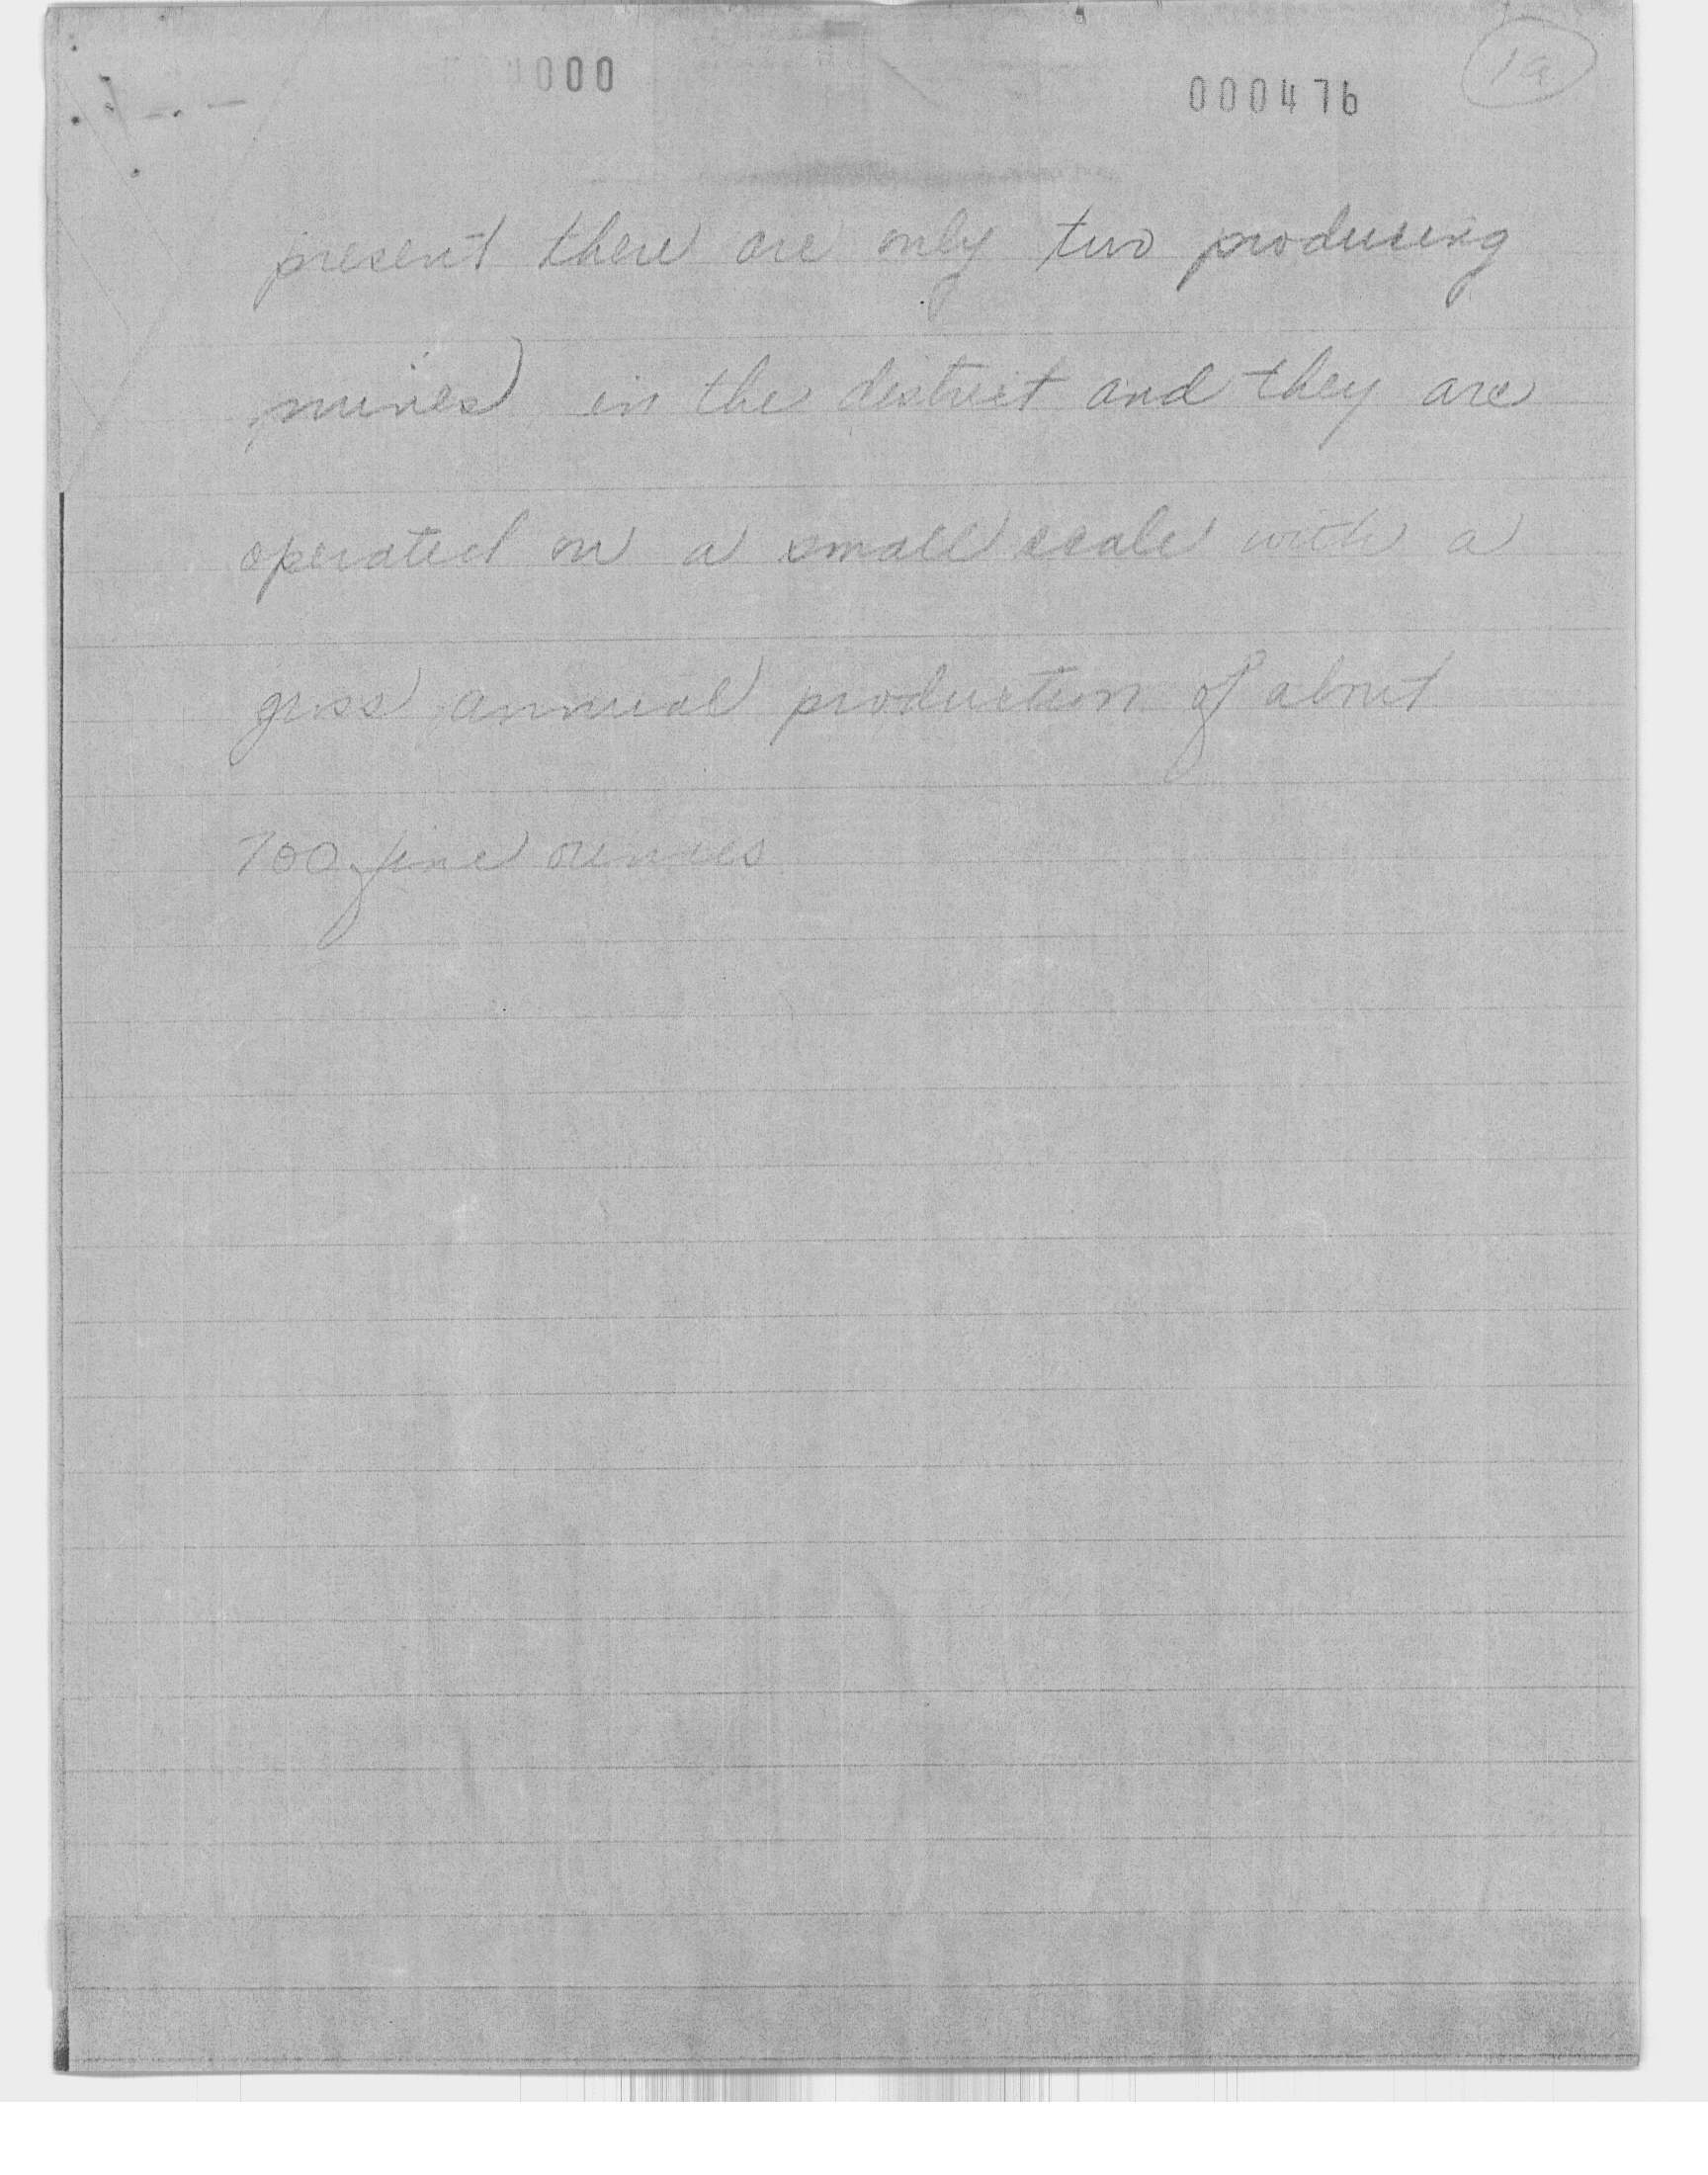 000
000476
1a
present there are only two producing
mines in the district and they are
operated on a small scale with a
gross annual production of about
700 fine ounces